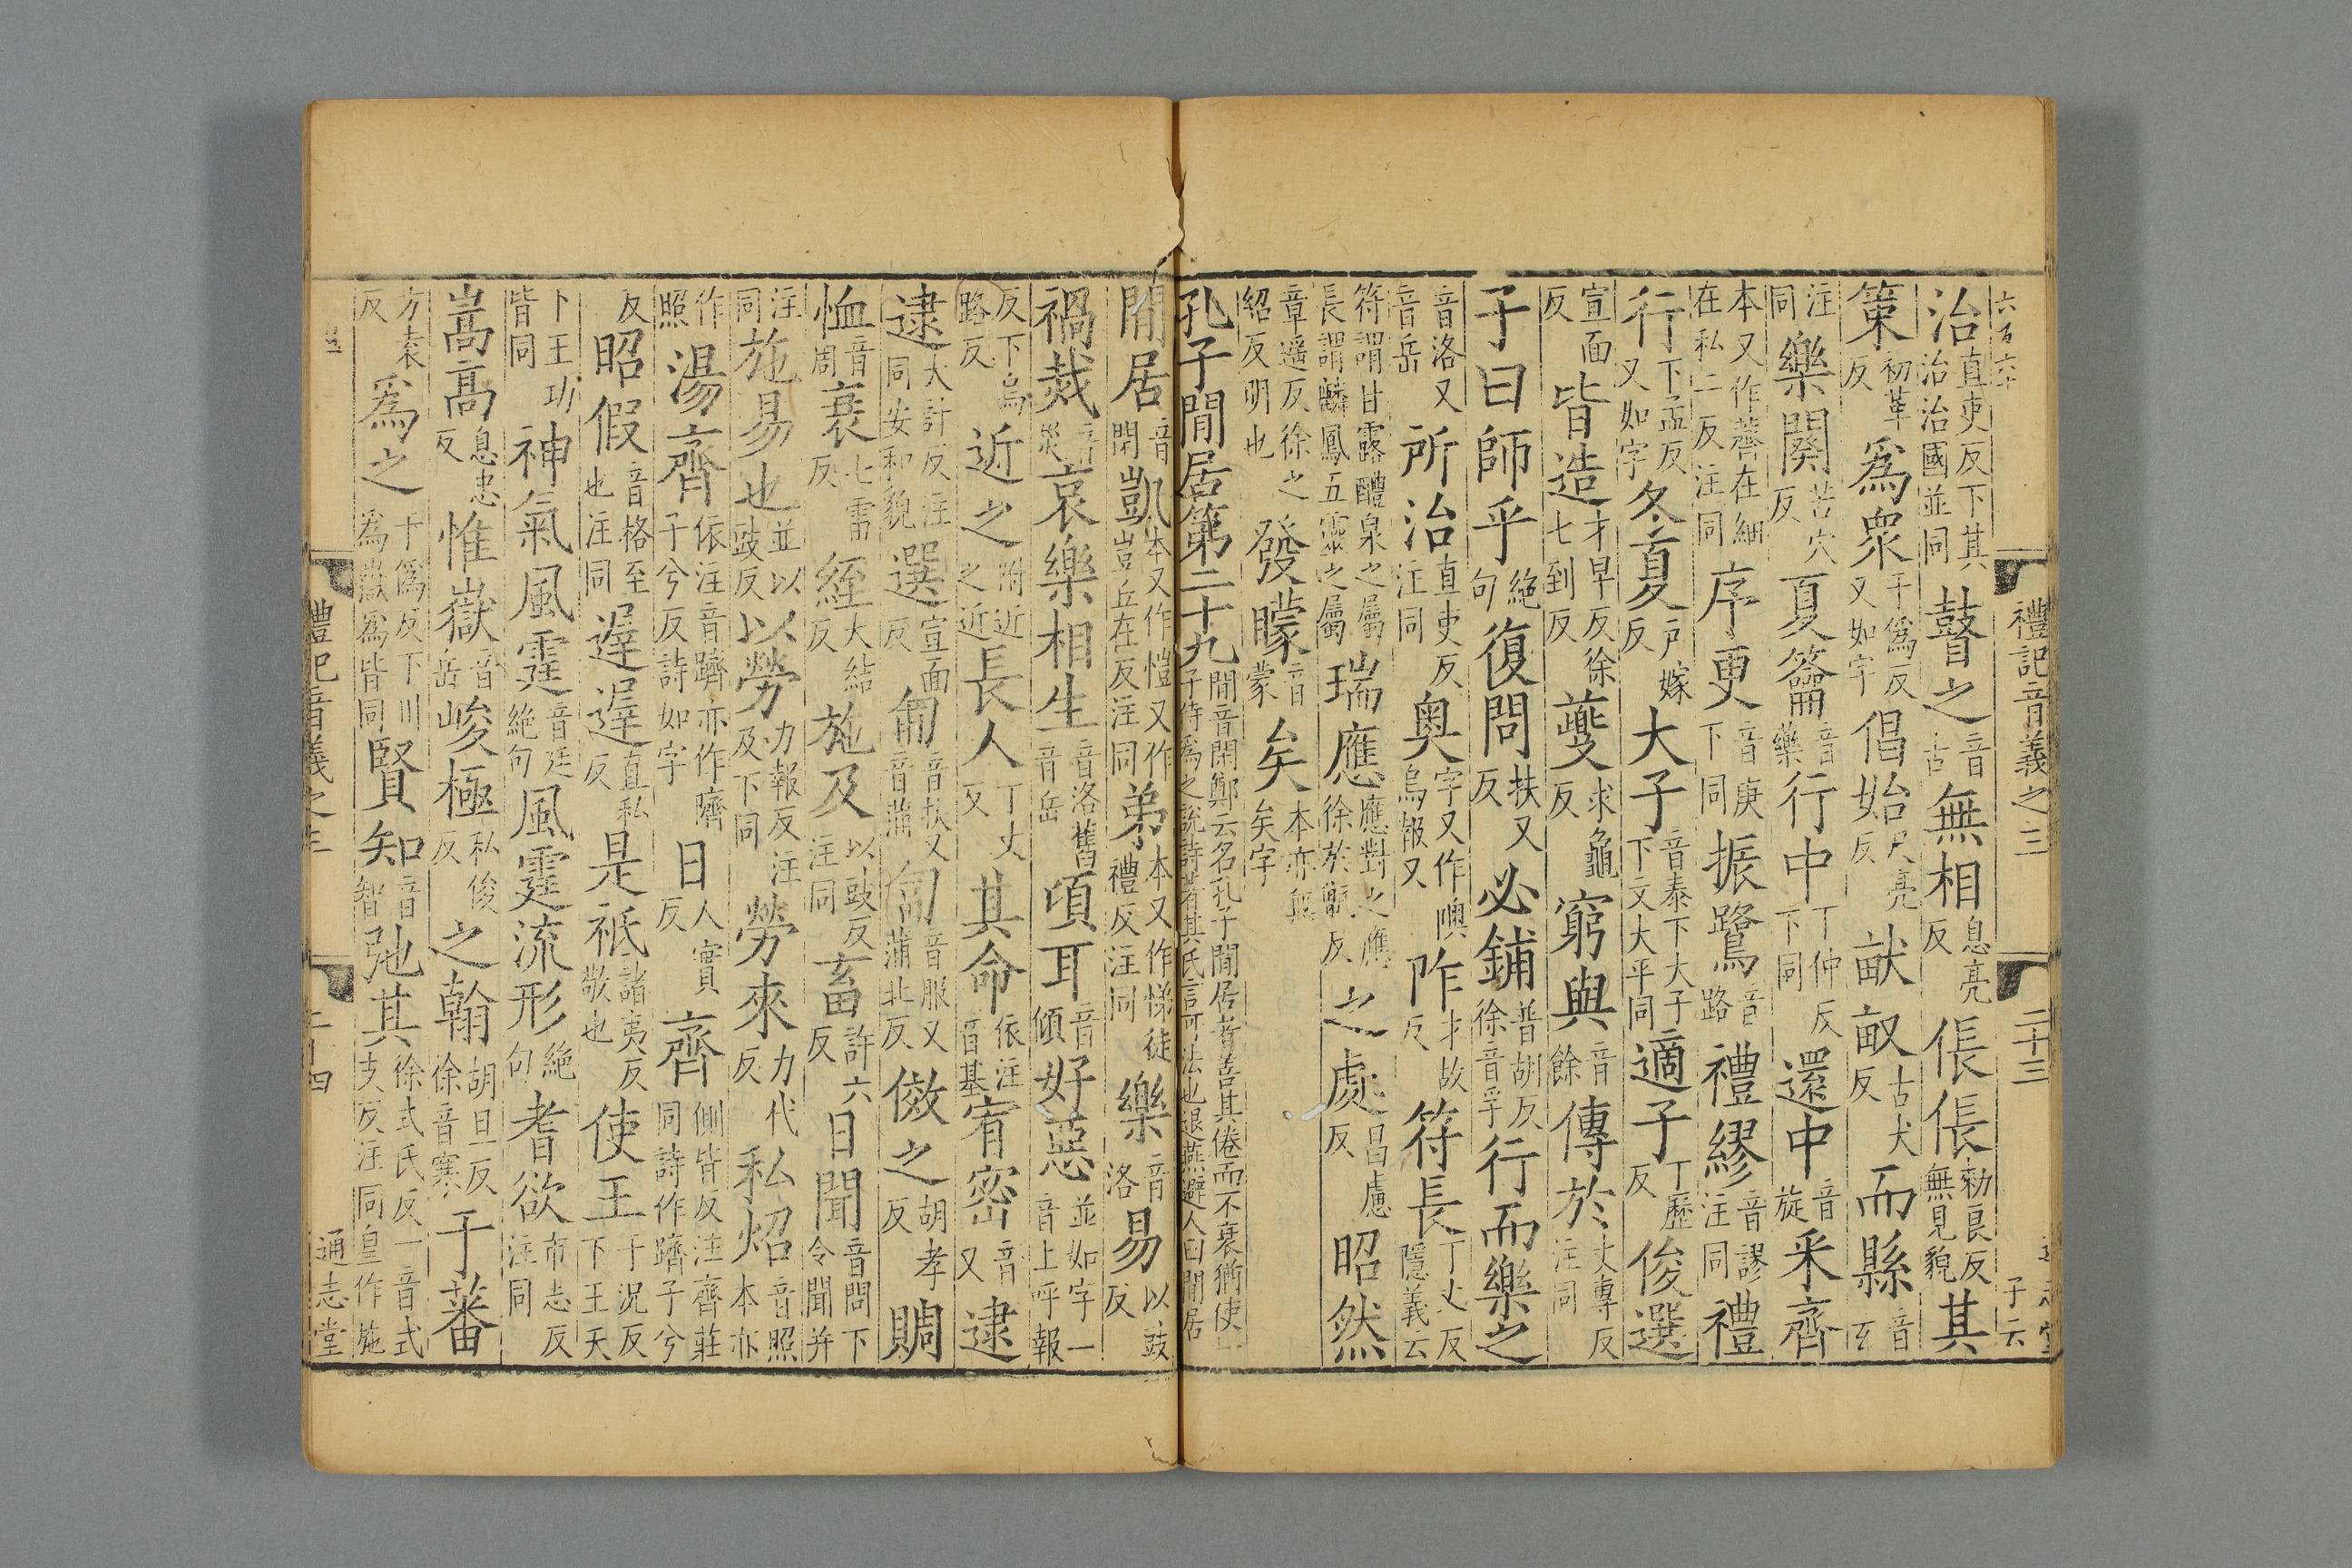 六百六十
禮記音義之三
二十三
通志堂
子云
治直吏反下其治治國並同瞽之音古無相息亮反倀倀勑良反無見貌其
策初革反爲衆于僞反又如字倡始尺亮反畎畝古犬反而縣音玄
注同樂闋苦穴反夏籥音樂行中丁仲反下同還中音旋釆齊
本又作薺在細在私二反注同序更音庚下同振鷺音路禮繆音謬注同禮
行下孟反又如字冬夏戶嫁反大子音泰下大子下文大平同適子丁歷反俊選
宣面反皆造才早反徐七到反夔求龜反窮與音餘傳於丈專反注同
子曰師乎絶句復問扶又反必鋪普胡反徐音孚行而樂之
音洛又音岳所治直吏反注同奥字又作噢烏報又阼才故反符長丁丈反隱義云
符謂甘露醴泉之屬長謂麟鳳五靈之屬瑞應應對之應徐於甑反之處昌慮反昭然
章遥反徐之紹反明也發矇音蒙矣本亦無矣字
孔子閒居第二十九閒音閑鄭云名孔子閒居者善其倦而不衰猶使一子侍爲之說詩著其氏言可法也退燕避人曰閒居
閒居音閑凱本又作愷又作豈丘在反注同弟本又作悌徒禮反注同樂音洛易以豉反
禍烖音災哀樂相生音洛舊音岳頃耳音傾好惡並如字一音上呼報
反下烏路反近之附近之近長人丁丈反其命依注音基宥密音又逮
逮大計反注同安和貌選宣面反匍音扶又音蒲匐音服又蒲北反傚之胡孝反賙
恤音周衰七雷反絰大結反施及以豉反注同畜許六反日聞音問下令聞并
注同施易也並以豉反以勞力報反注及下同勞來力代反私炤音照本亦
作照湯齊依注音躋亦作隮子兮反詩如字日人實反齊側皆反注齊莊同詩作躋子兮
反昭假音格至也注同遲遲直私反是祗諸夷反敬也使王于況反下王天
下王功皆同神氣風霆音廷絶句風霆流形絶句耆欲市志反注同
嵩高息忠反惟嶽音岳峻極私俊反之翰胡旦反徐音寒于蕃
方袁反爲之于僞反下川爲嶽爲皆同賢知音智弛其徐式氏反一音式支反注同皇作施
禮記音義之三
二十四
通志堂